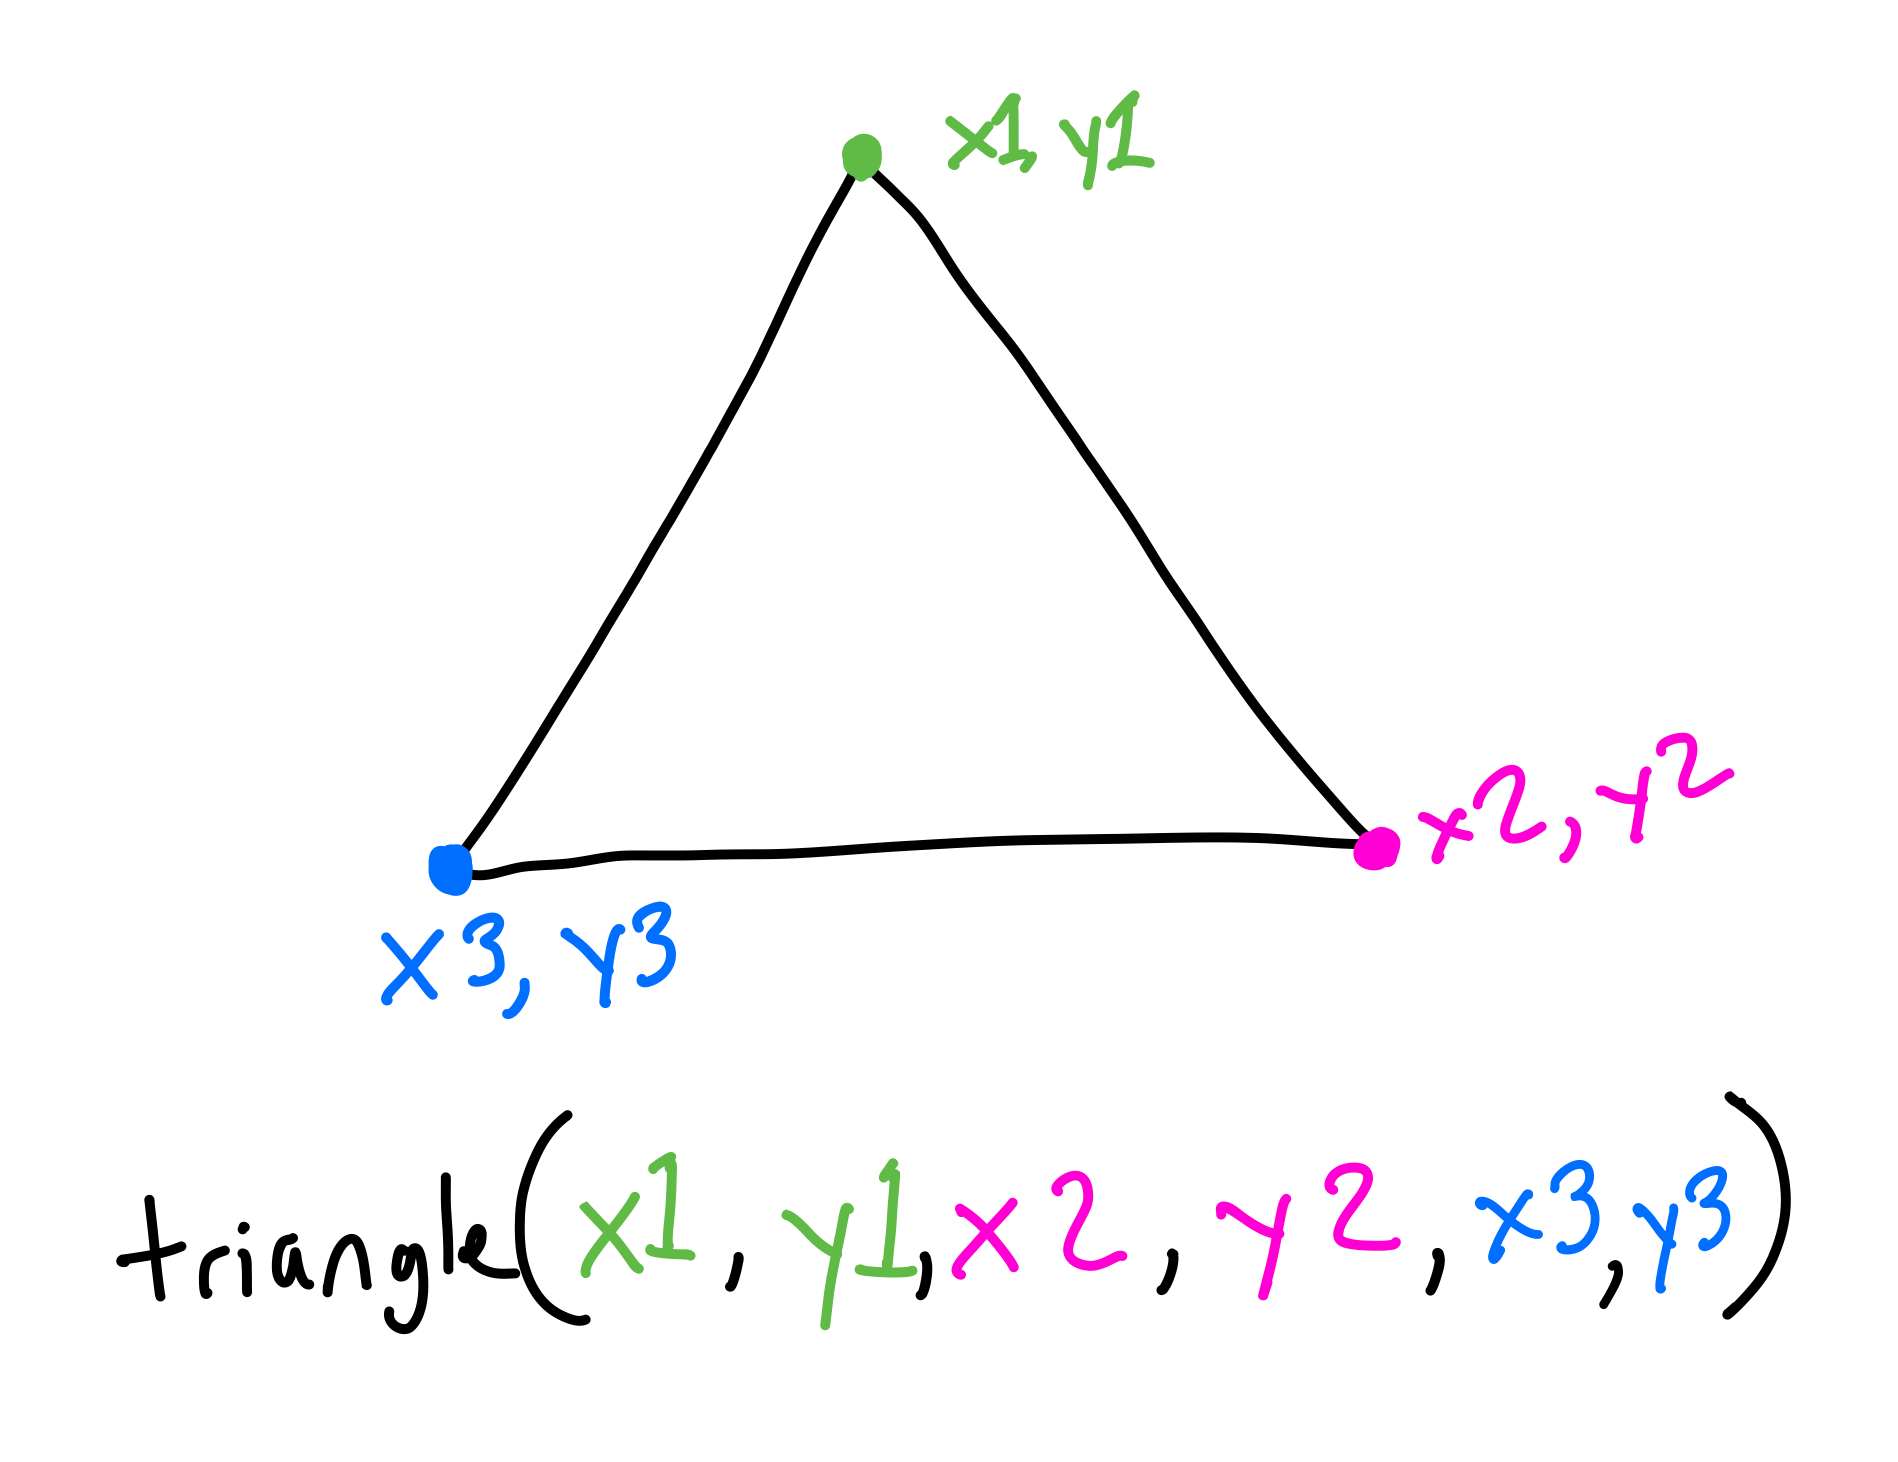 x1, y1
x2, y2
x3, y3
triangle(x1, y1, x2, y2, x3, y3)